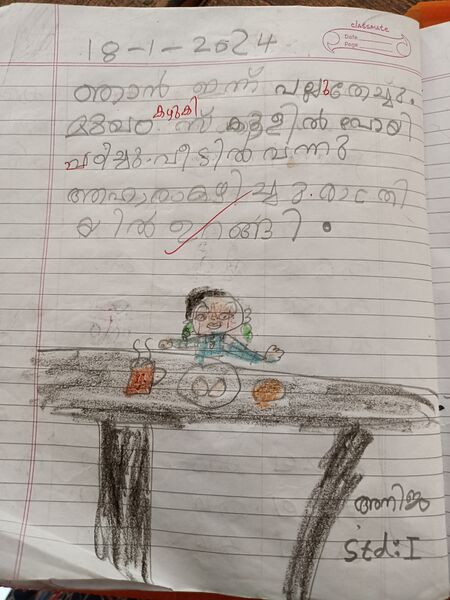 classmate
Date
Page
18-1-2024
ഞാൻ ഇന്ന് പല്ലുതേച്ചു.
കഴുകി
മുഖം സ്ക്കൂളിൽ പോയി
പഠിച്ചു. വീട്ടിൽ വന്നു
ആഹാരംകഴിച്ചു. രാത്രി
യിൽ ഉറങ്ങി.
അനിജ
Std: I